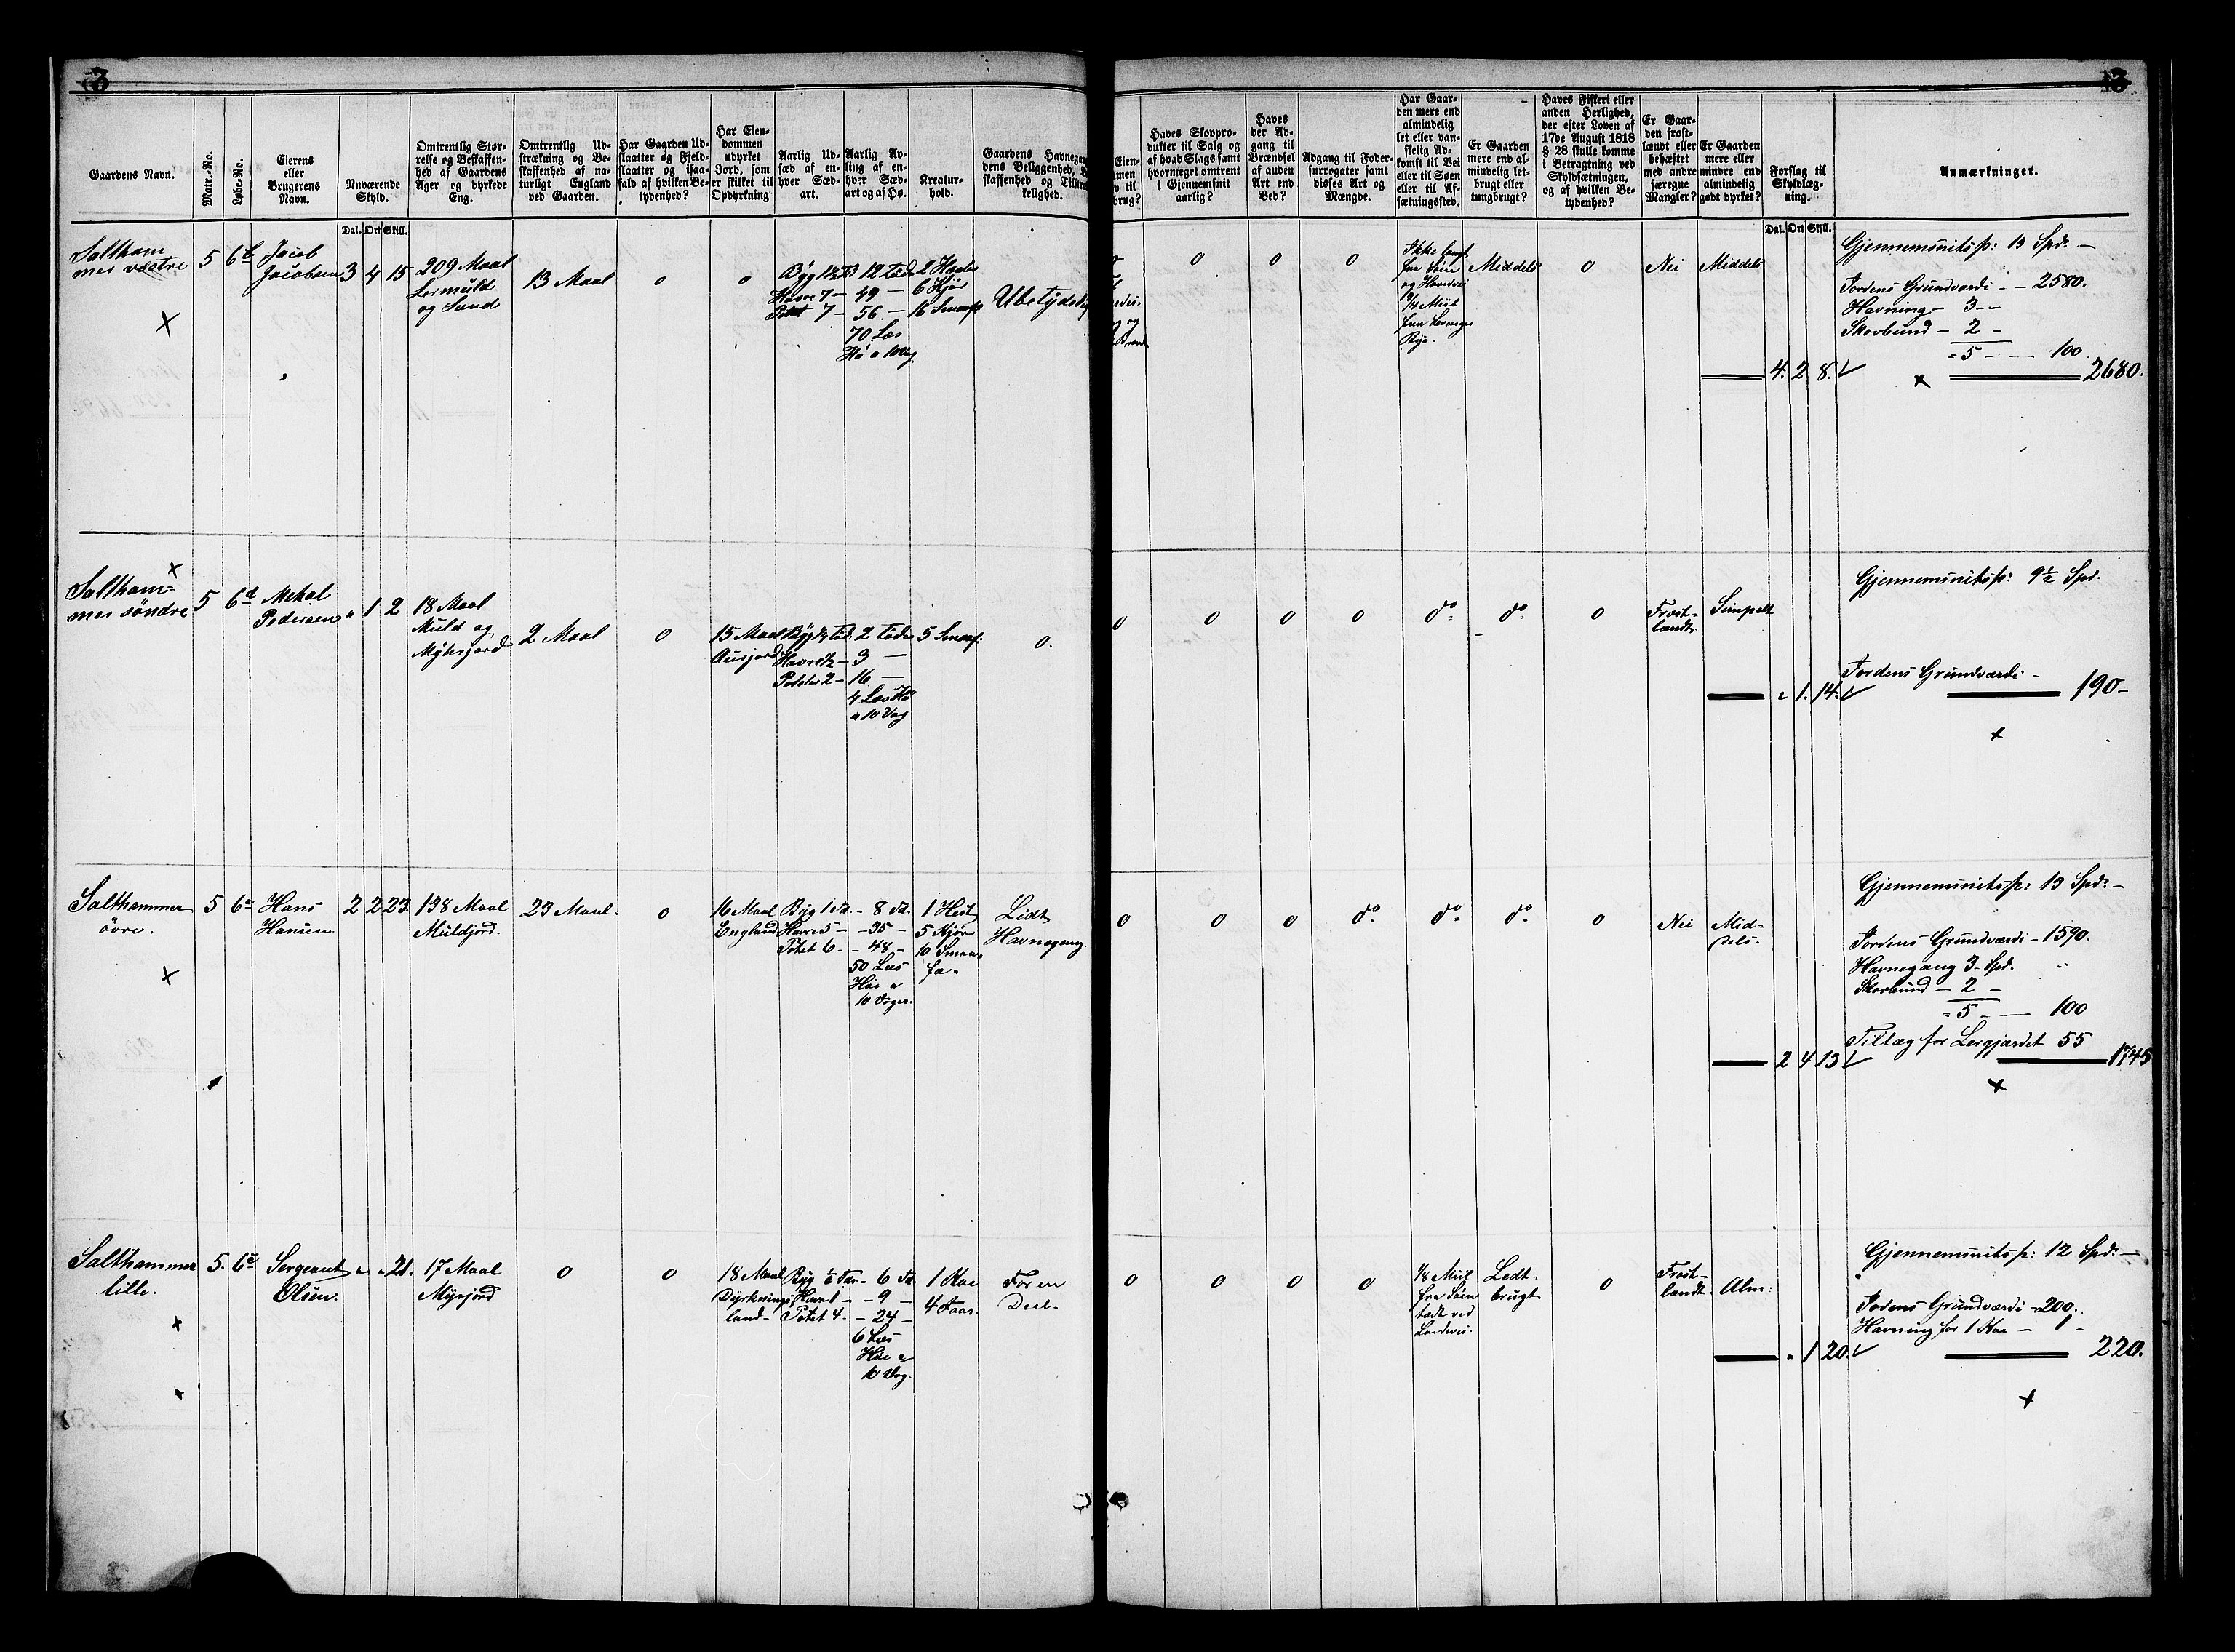 3
3
Gaardens Navn.
Matr.-No.
Løbe-No.
Eierens
eller
Brugerens
Navn.
Nuværende
Skyld.
Omtrentlig Stør-
relse og Beskaffen-
hed af Gaardens
Ager og dyrkede
Eng.
Omtrentlig Ud-
strækning og Be-
skaffenhed af na-
turligt England
ved Gaarden.
Har Gaarden Ud-
slaatter og Fjeld-
slaatter og isaa-
fald af hvilken Be-
tydenhed?
Har Eien-
dommen
udyrket
Jord, som
er skikket til
Opdyrkning
Aarlig Ud-
sæd af en-
hver Sæd-
art.
Aarlig Av-
ling af en-
hver Sæd-
art og af Hø.
Kreatur-
hold.
Gaardens Havnegan
dens Beliggenhed, B
skaffenhed og Tilstræ
kelighed.
Eien-
men
v til
brug?
Haves Skovpro-
dukter til Salg og
af hvad Slags samt
hvormeget omtrent
i Gjennemsnit
aarlig?
Haves
der Ad-
gang til
Brændsel
af anden
Art end
Ved?
Adgang til Foder-
surrogater samt
disses Art og
Mængde.
Har Gaar-
den mere end
almindelig
let eller van-
skelig Ad-
komst til Vei
eller til Søen
eller til Af-
sætningssted.
Er Gaarden
mere end al-
mindelig let-
brugt eller
tungbrugt?
Haves Fiskeri eller
anden Herlighed,
der efter Loven af
17de August 1818
§ 28 skulle komme
i Betragtning ved
Skyldsætningen,
og af hvilken Be-
tydenhed?
Er Gaar-
den frost-
lændt eller
behæftet
med andre
særegne
Mangler?
Er Gaarden
mere eller
mindre end
almindelig
godt dyrket?
Forslag til
Skyldlæg-
ning.
Anmærkninger.
Dal. Ort Skill.
Dal. Ort Skill.
Saltham
mer vestre
5 6b Jacob
Jacobsen
3 4 15
209 Maal
Lermuld
og Sand
13 Maal
0
0
Byg 1½ Td 12 Tdr
Havre 7 — 49 —
Potet 7 — 56 —
70 Læs
Hø a 10 Vog
2 Heste
6 Kjør
16 Smaaf
Ubetydelig
0
0
0
Ikke langt
fra Søen
og Hovedvei
¼ Miil
fra Levanger
Bye.
Middels
0
Nei
Middels
4. 2. 8.
Gjennemsnitspr: 13 Spd. —
Jordens Grundværdi — 2580.
Havning — 3 —
Skovbund — 2 —
= 5 — 100
2680.
Saltham=
mer söndre
5 6d Mekal
Pedersen
„ 1 2
18 Maal
Muld og
Myhrjord
2 Maal
0
15 Maal
Aurjord
Byg ¼ Td. 2 Tdr
Havre ½ — 3 —
Poteter 2 — 16 —
4 Læs Hø
a 10 Vog
5 Smaaf.
0.
0
0
0
0
do
do
0
Frost-
lændt.
Simpelt
„ 1. 14.
Gjennemsnitspr: 9½ Spd.
Jordens Grundværdi —
190 —
Salthammer
övre.
5 6e Hans
Hansen
2 2 23.
138 Maal
Muldjord.
23 Maal.
0
16 Maal
England
Byg 1 Td. — 8 Td.
Havre 5 — 35 —
Potet 6 — 48 —
50 Læs
Höe a
10 Voger.
1 Hest
5 Kjør
10 Smaa-
fæ.
Lidt
Havnegang.
0
0
0
do
do
do
0
Nei
Mid-
dels.
2 4 13
Gjennemsnitspr: 13 Spd. —
Jordens Grundværdi — 1590.
Havnegang 3 Spd.
Skovbund — 2 —
= 5 — 100
Tillæg for Lergjærdet 55
1745
Salthammer
lille.
5. 6e Sergeant
Olsen.
„ „ 21.
17 Maal
Myrjord
0
0
18 Maal
Dyrknings
land —
Byg ½ Tdr. — 6 Td.
Havre 1 — 9 —
Potet 4. — 24 —
6 Læs
Höe a
10 Vog.
1 Koe
4 Faar.
For en
Deel.
0
0
0
0
⅛ Miil
fra Søen
tædt ved
Landevei.
Ledt-
brugt.
0
Frost-
lændt.
Alm:
„ 1 20.
Gjennemsnitspr: 12 Spd. —
Jodens Grundværdi — 200.
Havning for 1 Koe — 1 —
220.